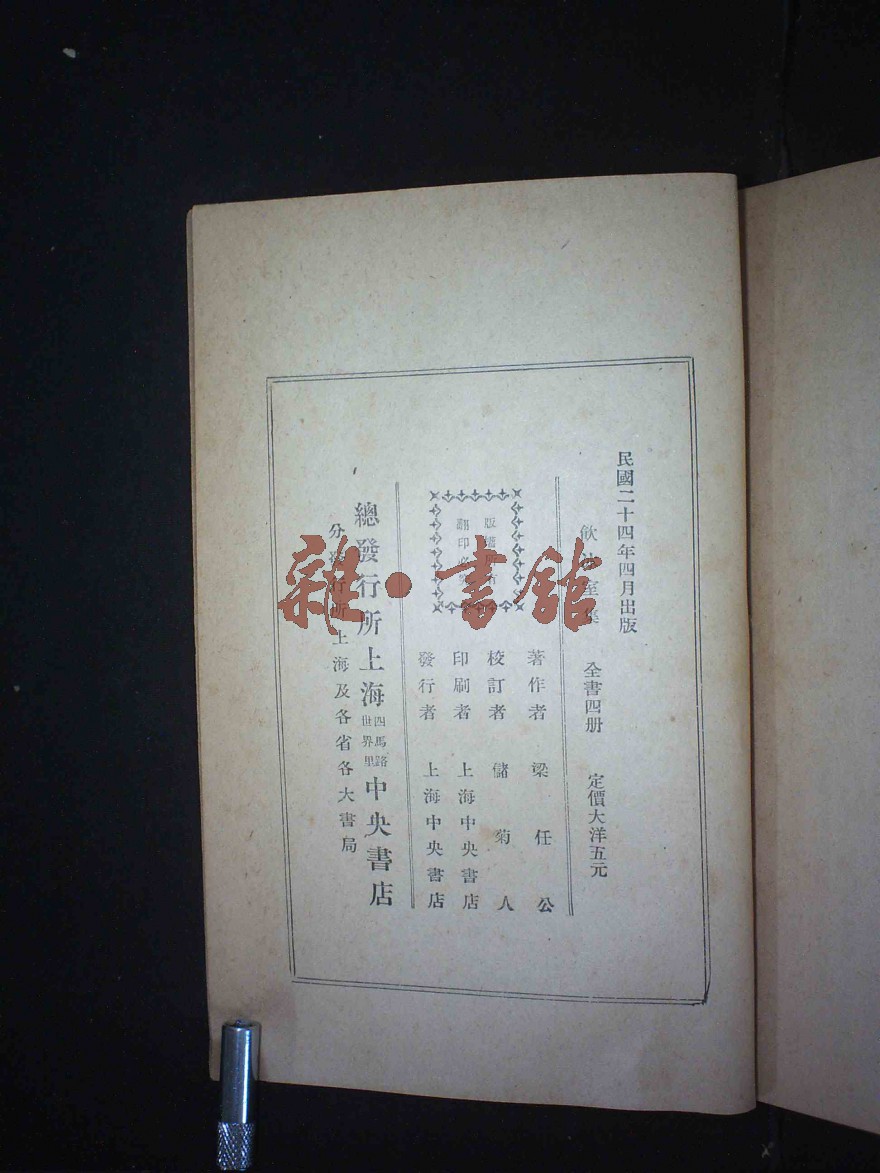 民國二十四年四月出版
飲冰室集 全書四册 定價大洋五元
著作者 梁任公
校訂者 儲菊人
印刷者 上海中央書店
發行者 上海中央書店
版權所有
翻印必究
總發行所上海四馬路世界里中央書店
分發行所上海及各省各大書局
雜·書館